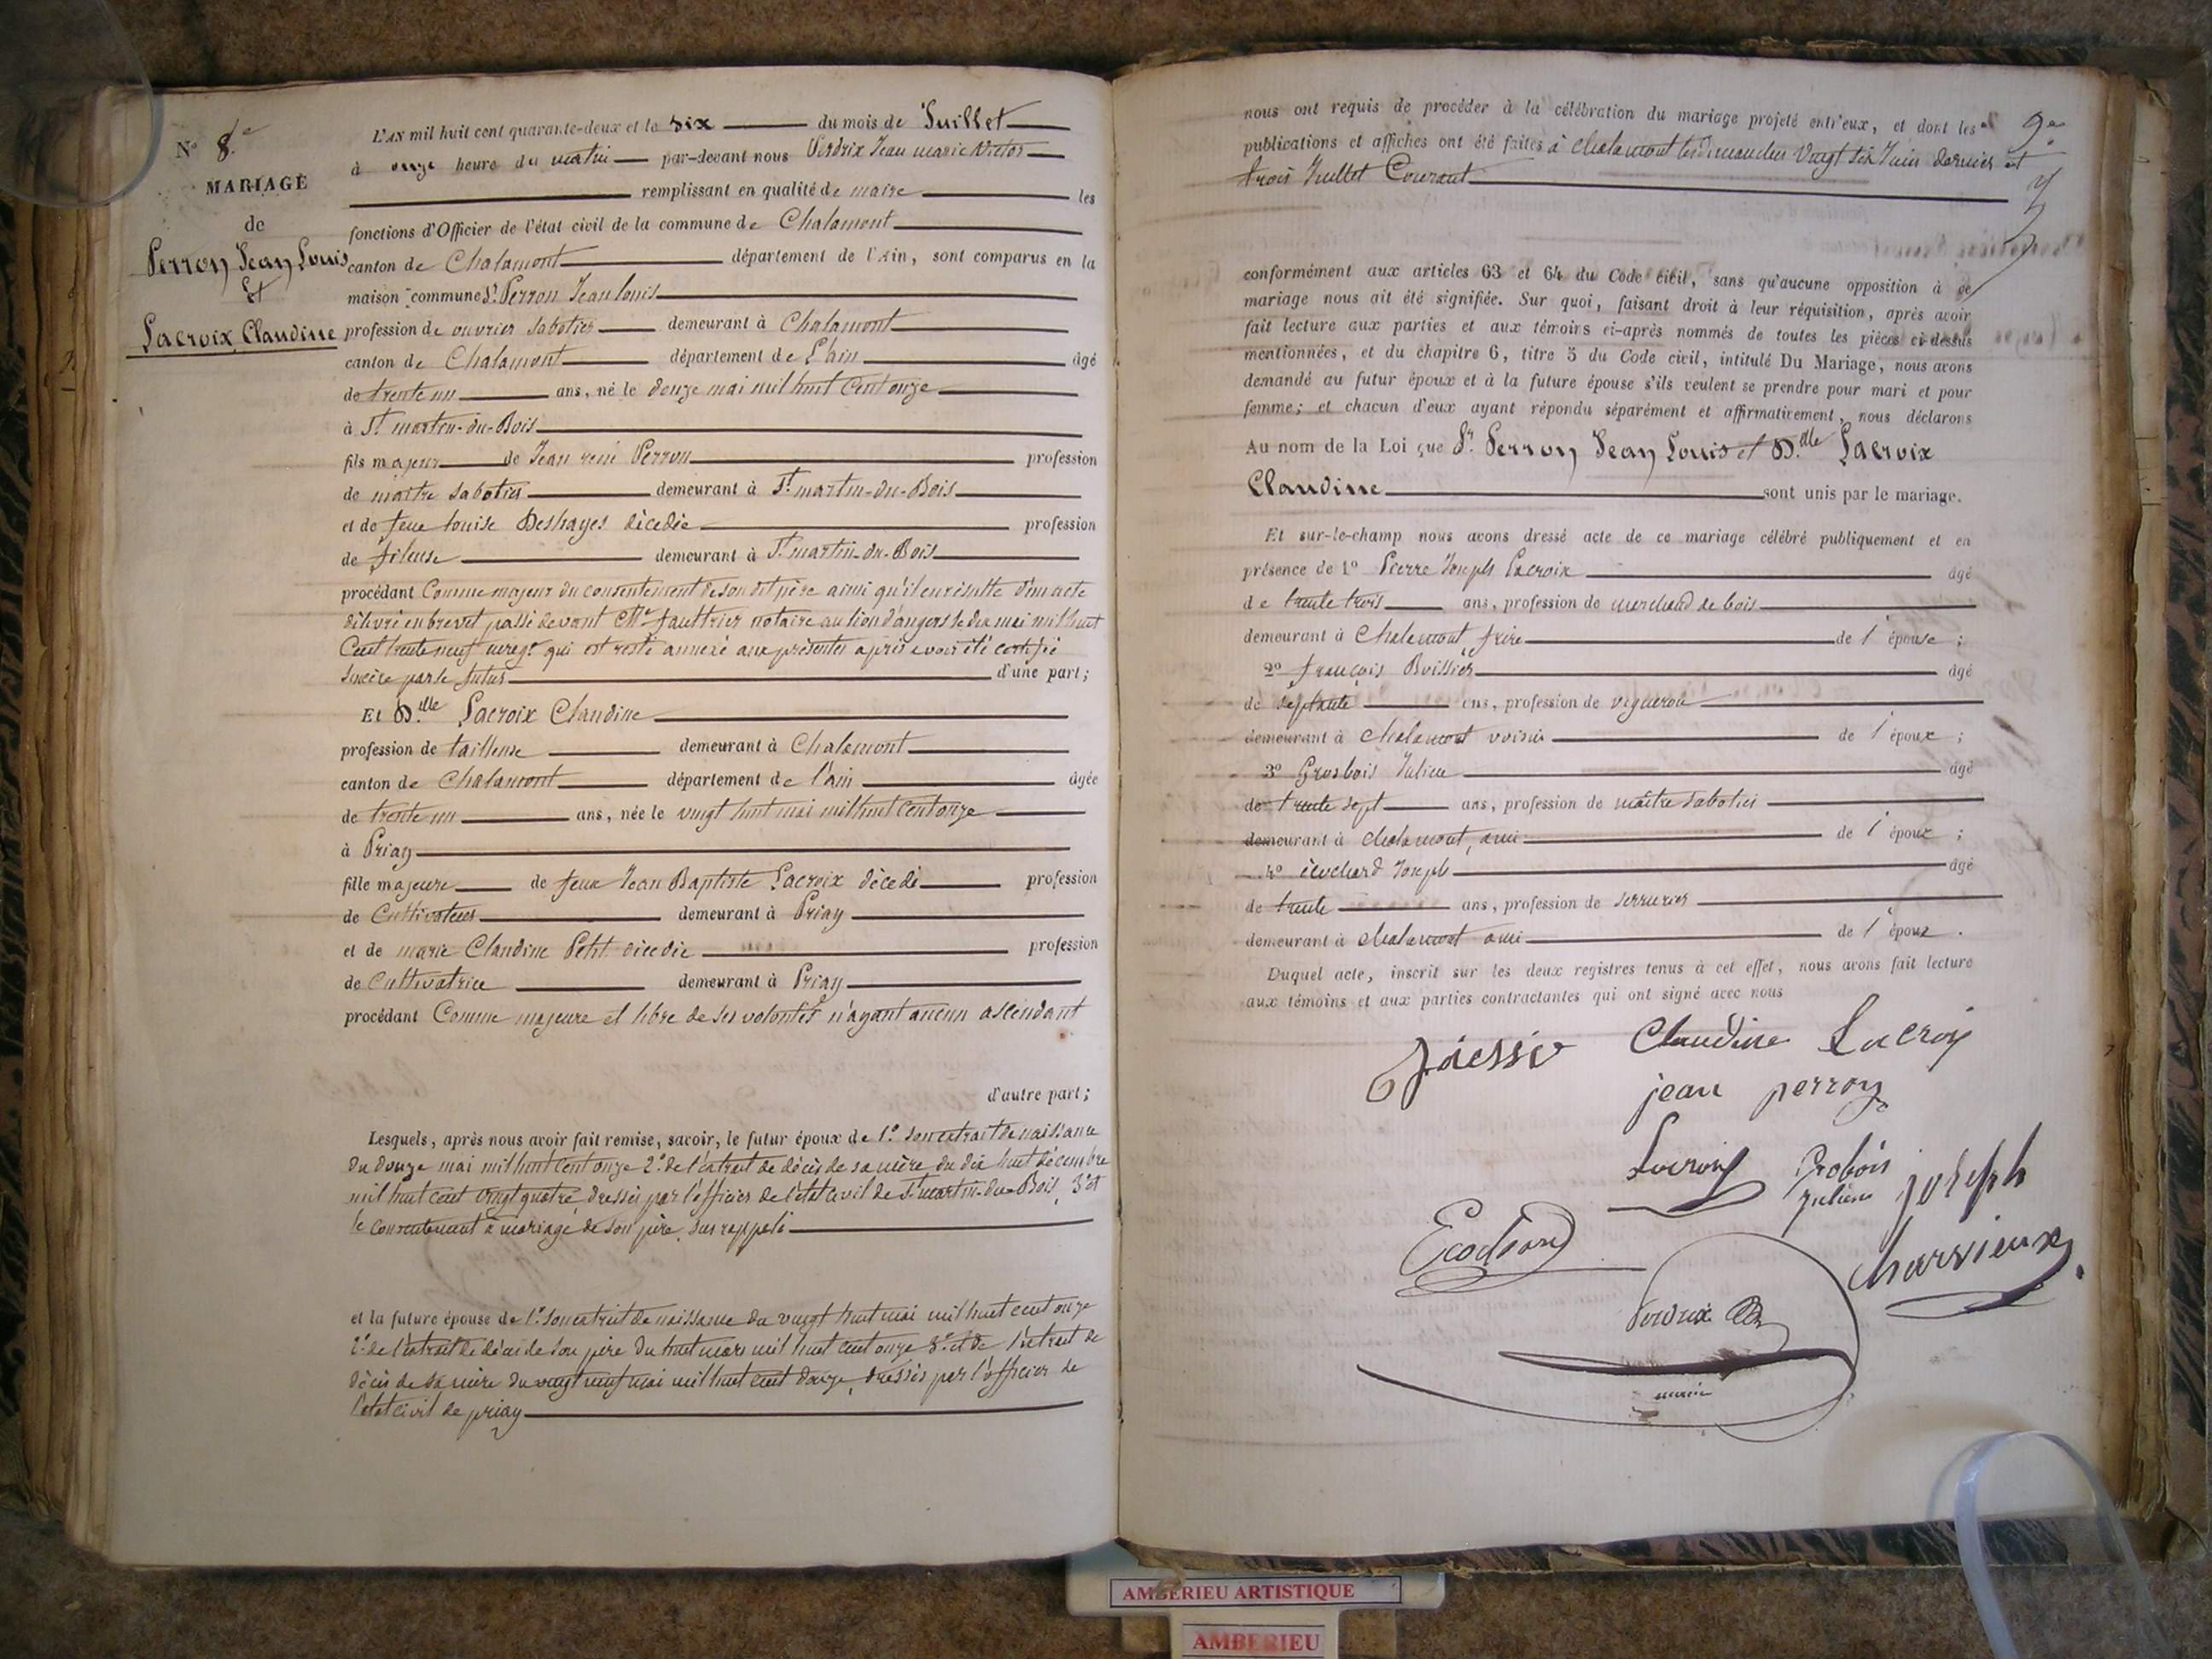 N° 8.e
MARIAGE
de
Perron Jean Louis
Et
Lacroix Claudine
L'AN mil huit cent quarante-deux et le six du mois de Juillet
à onze heure du matin par-devant nous Verdrix Jean marie Victor
remplissant en qualité de maire les
fonctions d'Officier de l'état civil de la commune de Chalamont
canton de Chalamont département de l'Ain, sont comparus en la
maison commune Sr. Perron Jean louis
profession de ouvrier sabotier demeurant à Chalamont
canton de Chalamont département de L'ain âgé
de trente un ans, né le douze mai mil huit Cent onze
à St. martin-du-Bois
fils majeur de Jean rené Perron profession
de maitre sabotier demeurant à St. martin-du-Bois
et de feue louise Deshayes décédée profession
de fileuse demeurant à St. martin-du-Bois
procédant Comme majeur du consentement de son dit père ainsi qu'il en résulte d'un acte
délivré en brevet passé devant Me. fauttrier notaire au lion d'angers le dix mai mil huit
Cent trente neuf enregt. qui est resté annexé aux présentes après avoir été certifié
Sincère par le futur d'une part;
Et D.lle Lacroix Claudine
profession de tailleuse demeurant à Chalamont
canton de Chalamont département de l'ain âgée
de trente un ans, née le vingt huit mai mil huit Cent onze
à Priay
fille majeure de feux Jean Baptiste Lacroix décédé profession
de Cultivateur demeurant à Priay
et de marie Claudine Petit décédée profession
de Cultivatrice demeurant à Priay
procédant Comme majeure et libre de ses volontés n'ayant aucun ascendant
d'autre part;
Lesquels, après nous avoir fait remise, savoir, le futur époux de 1.° son extrait de naissance
du douze mai mil huit cent onze 2.° de l'extrait de décès de sa mère du dix huit décembre
mil huit cent vingt quatre, dressés par l'officier de l'état civil de St. martin-du-Bois, 3° et
le consentement à mariage de son père, sus rappelé
et la future épouse de 1.° son extrait de naissance du vingt huit mai mil huit cent onze
2.° de l'extrait de décès de son père du huit mars mil huit cent onze 3.° et de l'extrait de
décès de sa mère du vingt neuf mai mil huit cent douze, dressés par l'officier de
l'état civil de priay
9.e
nous ont requis de procéder à la célébration du mariage projeté entr'eux, et dont les
publications et affiches ont été faites à chalamont les dimanches vingt six Juin dernier et
trois Juillet Courant
conformément aux articles 63 et 64 du Code civil, sans qu'aucune opposition à ce
mariage nous ait été signifiée. Sur quoi, faisant droit à leur réquisition, après avoir
fait lecture aux parties et aux témoins ci-après nommés de toutes les pièces ci-dessus
mentionnées, et du chapitre 6, titre 5 du Code civil, intitulé Du Mariage, nous avons
demandé au futur époux et à la future épouse s'ils veulent se prendre pour mari et pour
femme; et chacun d'eux ayant répondu séparément et affirmativement, nous déclarons
Au nom de la Loi que Sr. Perron Jean Louis et D.lle Lacroix
Claudine sont unis par le mariage.
Et sur-le-champ nous avons dressé acte de ce mariage célébré publiquement et en
présence de 1° Pierre Joseph Lacroix âgé
de trente trois ans, profession de marchand de bois
demeurant à Chalamont, frère de l'épouse;
2° françois Boissier âgé
de septante ans, profession de vigneron
demeurant à chalamont voisin de l'époux;
3° Grosbois Julien âgé
de trente sept ans, profession de maître sabotier
demeurant à chalamont, ami de l'époux;
4° écochard Joseph âgé
de trente ans, profession de serrurier
demeurant à chalamont ami de l'époux.
Duquel acte, inscrit sur les deux registres tenus à cet effet, nous avons fait lecture
aux témoins et aux parties contractantes qui ont signé avec nous
Claudine Lacroix
jean perron
Lacroix Grobois
Julien joseph
Ecochard charvieux
Verdrix
maire
AMBERIEU ARTISTIQUE
AMBERIEU